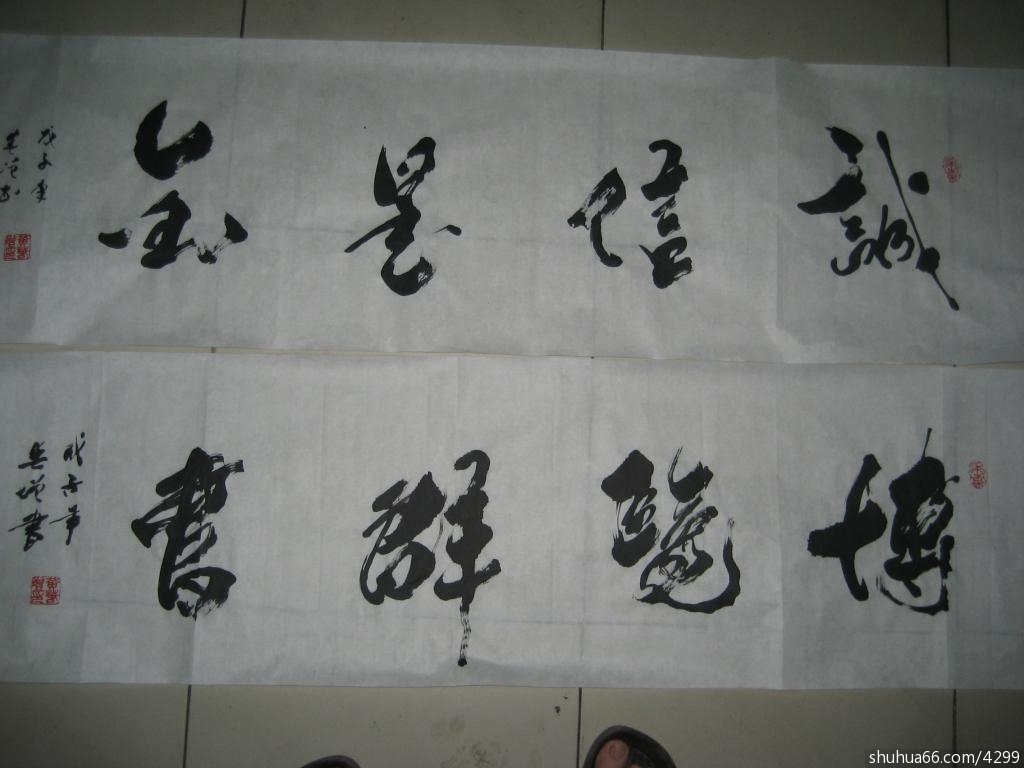 誠信是金
戊子年
博覽群書
戊子年
shuhua66.com/4299